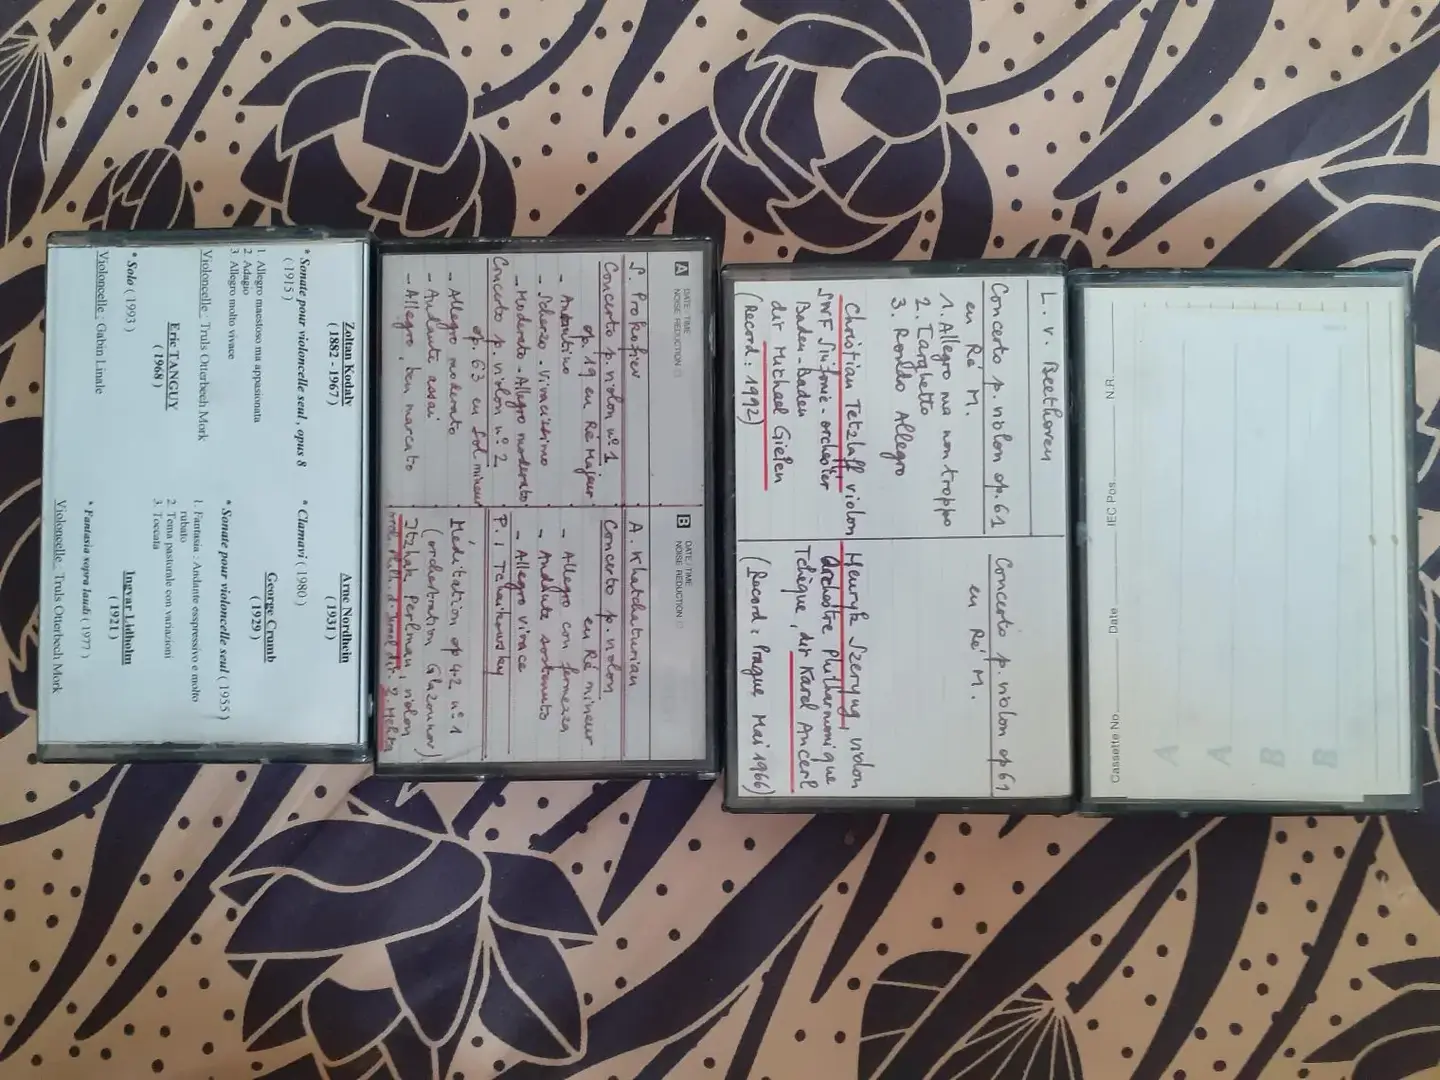 Zoltan Kodaly
( 1882 - 1967 )
* Sonate pour violoncelle seul, opus 8
( 1915 )
1 Allegro maestoso ma appasionata
2 Adagio
3 Allegro molto vivace
Violoncelle : Truls Otterbech Mork
Eric TANGUY
( 1968 )
* Solo ( 1993 )
Violoncelle : Gabin Linale
Arne Nordhein
( 1931 )
* Clamavi ( 1980 )
George Crumb
( 1929 )
* Sonate pour violoncelle seul ( 1955 )
1. Fantasia : Andante esspressivo e molto
rubato
2. Tema pastorale con variazioni
3. Toccata
Ingvar Lidholm
( 1921 )
* Fantasia sopra laudi ( 1977 )
Violoncelle : Truls Otterbech Mork
A DATE / TIME
NOISE REDUCTION
S. Prokofiev
Concerto p. violon n° 1
op. 19 en Ré Majeur
- Andantino
- Scherzo - Vivacissimo
- Moderato - Allegro moderato
Concerto p. violon n° 2
op. 63 en Sol mineur
- Allegro moderato
- Andante assai
- Allegro, ben marcato
B DATE / TIME
NOISE REDUCTION
A. Khatchaturian
Concerto p. violon
en Ré mineur
- Allegro con fermezza
- Andante sostenuto
- Allegro vivace
P. I Tchaikowsky
Méditation op 42 n° 1
(orchestration Glazounov)
Itzhak Perlman, violon
Z. Mehta
L. v. Beethoven
Concerto p. violon op. 61
en Ré M.
1. Allegro ma non troppo
2. Larghetto
3. Rondo Allegro
Christian Tetzlaff violon
SWF Sinfonie-orchester
Baden-Baden
dir Michael Gielen
(Record : 1992)
Concerto p. violon op 61
en Ré M.
Henryk Szeryng, violon
Orchestre Philharmonique
Tchèque, dir Karel Ancerl
(Record : Prague Mai 1966)
Cassette No
Date
IEC Pos.
N.R.
A
A
B
B